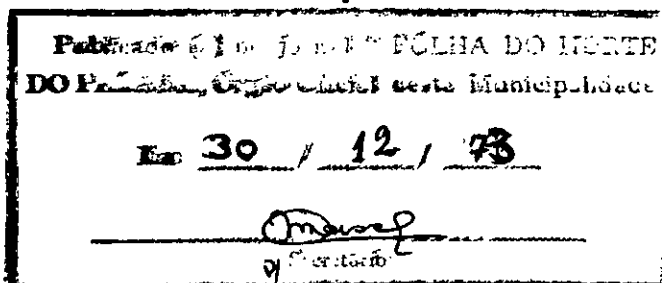 Publicado no jornal "FÔLHA DO NORTE
DO PARANÁ", Órgão Oficial desta Municipalidade
Em 30 / 12 / 73
Secretário